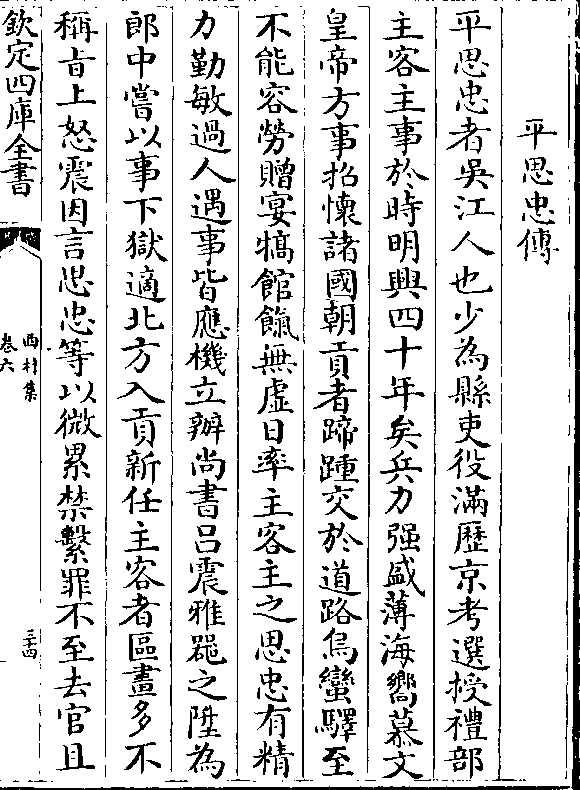 平思忠傳
平思忠者吳江人也少為縣吏役滿歷京考選授禮部
主客主事於時明興四十年矣兵力强盛薄海嚮慕文
皇帝方事招懷諸國朝貢者蹄踵交於道路烏蠻驛至
不能容勞贈宴犒館餼無虛日率主客主之思忠有精
力勤敏過人遇事皆應機立辦尚書吕震雅器之陞為
郎中嘗以事下獄適北方入貢新任主客者區畫多不
稱旨上怒震因言思忠等以微累禁繫罪不至去官且
欽定四庫全書
西村集
卷六
三十四